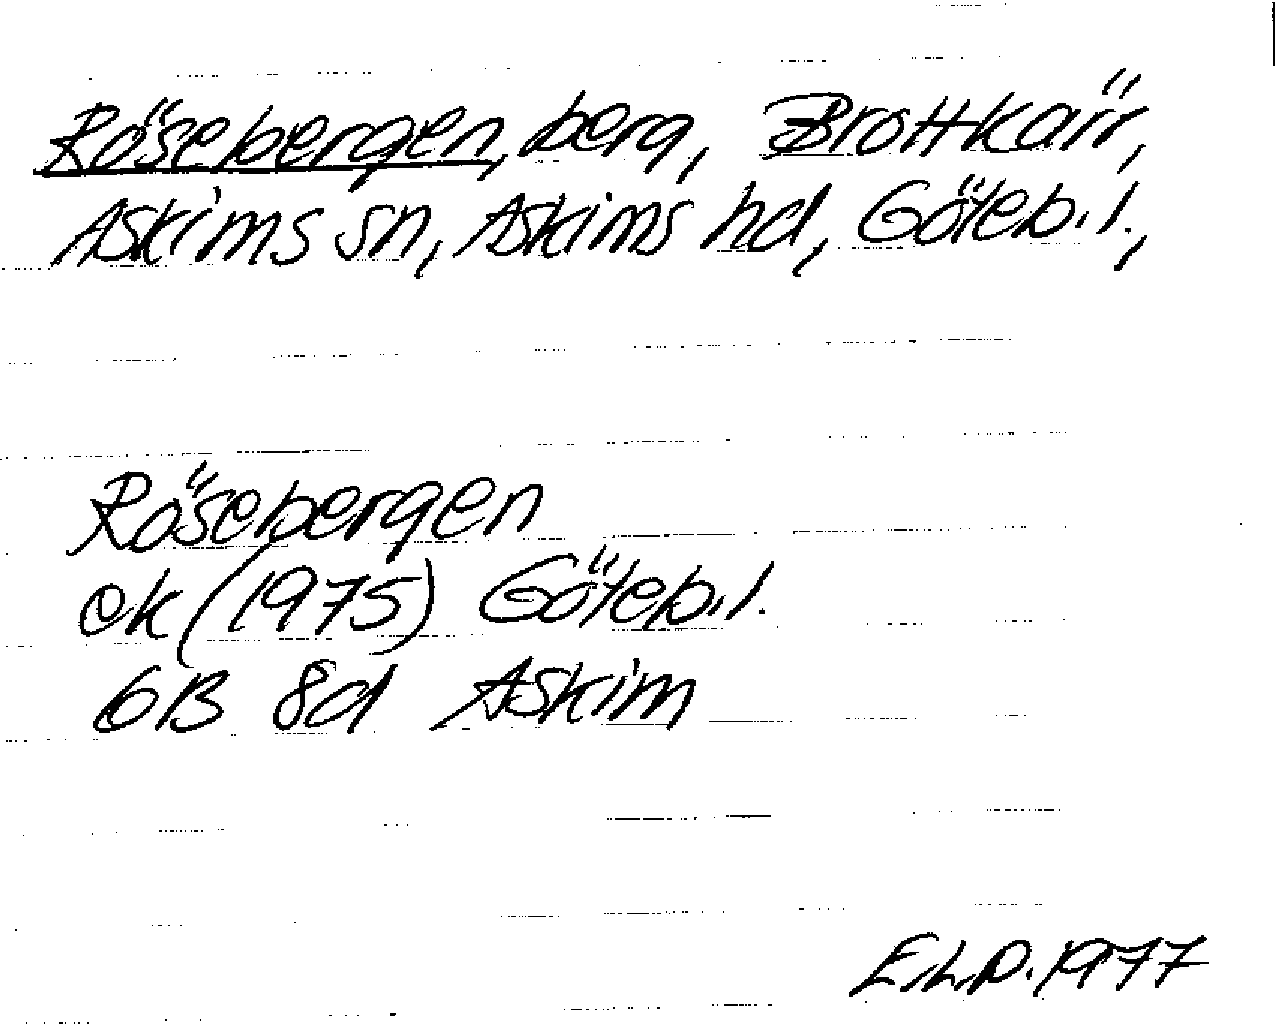 Rösebergen, berg, Brottkärr,
Askims sn, Askims hd, Göteb.l.,
Rösebergen
ek (1975) Göteb.l.
6B 8d Askim
E.L.P. 1977